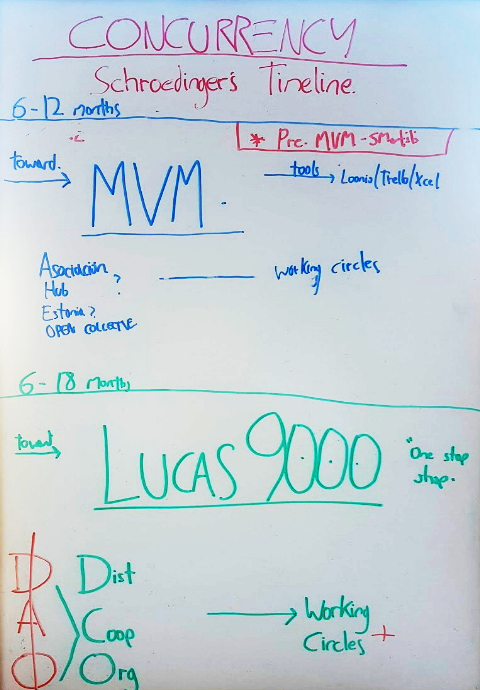 CONCURRENCY
Schroedinger's Timeline.
6-12 months
* Pre. MVM - 
toward.
MVM.
tools
Loomio/Trello/Xcel
Asociación
Hub ?
Estonia?
OPEN COLLECTIVE
working circles
6-18 Months
toward
LUCAS 9000
"One stop
shop.
DAO
Dist
Coop
Org
Working
Circles +